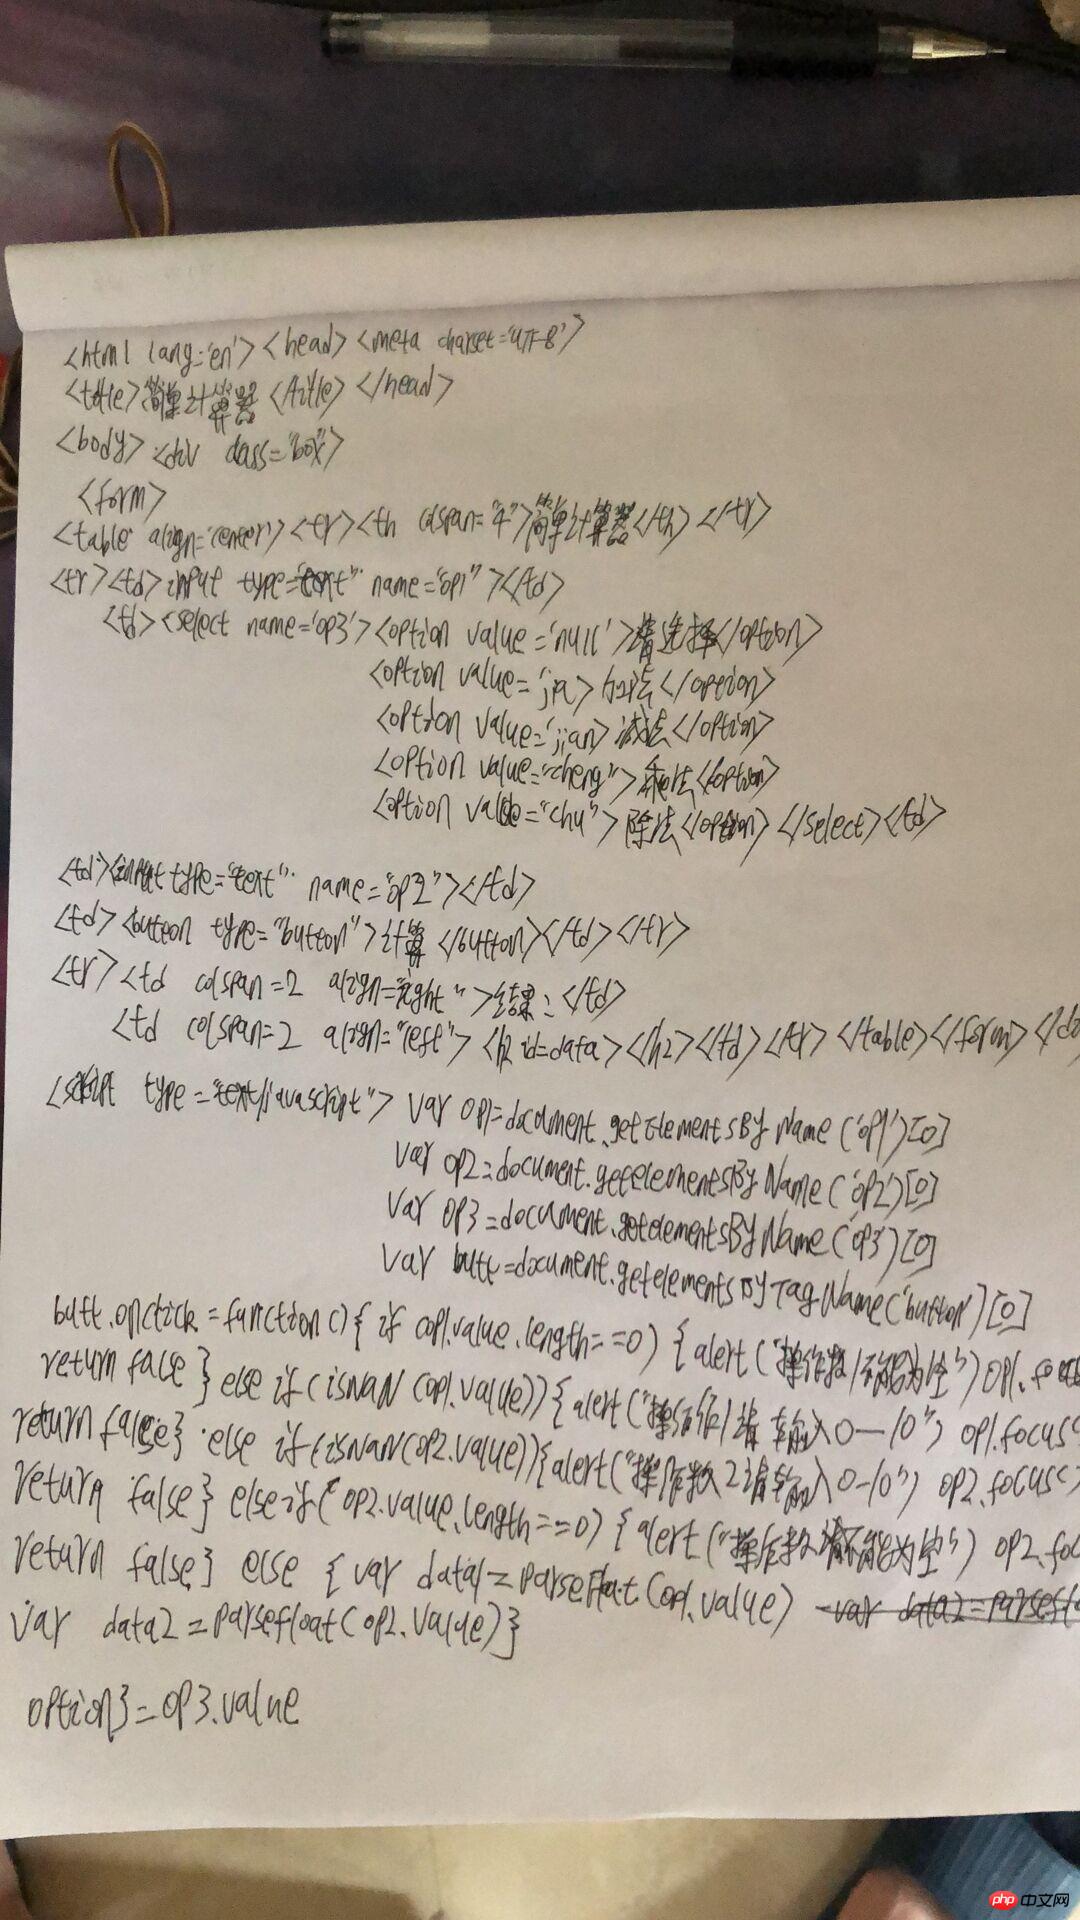 <html lang='en'><head><meta charset='UTF-8'>
<title>简单计算器</title></head>
<body><div class="box">
<form>
<table align='center'><tr><th colspan="4">简单计算器</th></tr>
<tr><td>input type="text" name="op1"></td>
<td><select name='op3'><option value='null'>请选择</option>
<option value='jia>加法</option>
<option value='jian>减法</option>
<option value="cheng">乘法</option>
<option value="chu">除法</option></select><td>
<td><input type="text" name="op2"></td>
<td><button type="button">计算</button></td></tr>
<tr><td colspan=2 align="right">结果:</td>
<td colspan=2 align="left"><h2 id=data></h2></td></tr></table></form>
<script type="text/javascript">var op1=document.getElementsByName('op1')[0]
var op2=document.getelementsByName('op2')[0]
var op3=document.getelementsByName('op3')[0]
var butt=document.getelementsByTagName('button')[0]
butt.onclick=function(){if(op1.value.length==0){alert("操作数1不能为空")op1.
return false}else if(isNaN(op1.value)){alert("1请输入0-10")op1.focus(
return false}else if(isNaN(op2.value)){alert("操作数2请输入0-10")op2.focus(
return false}else if(op2.value.length==0){alert("操作数不能为空")op2.foc
return false}else{var data1=parseFloat(op1.value) var data2=parsefl
var data2=parsefloat(op2.value)}
option3=op3.value
php 中文网